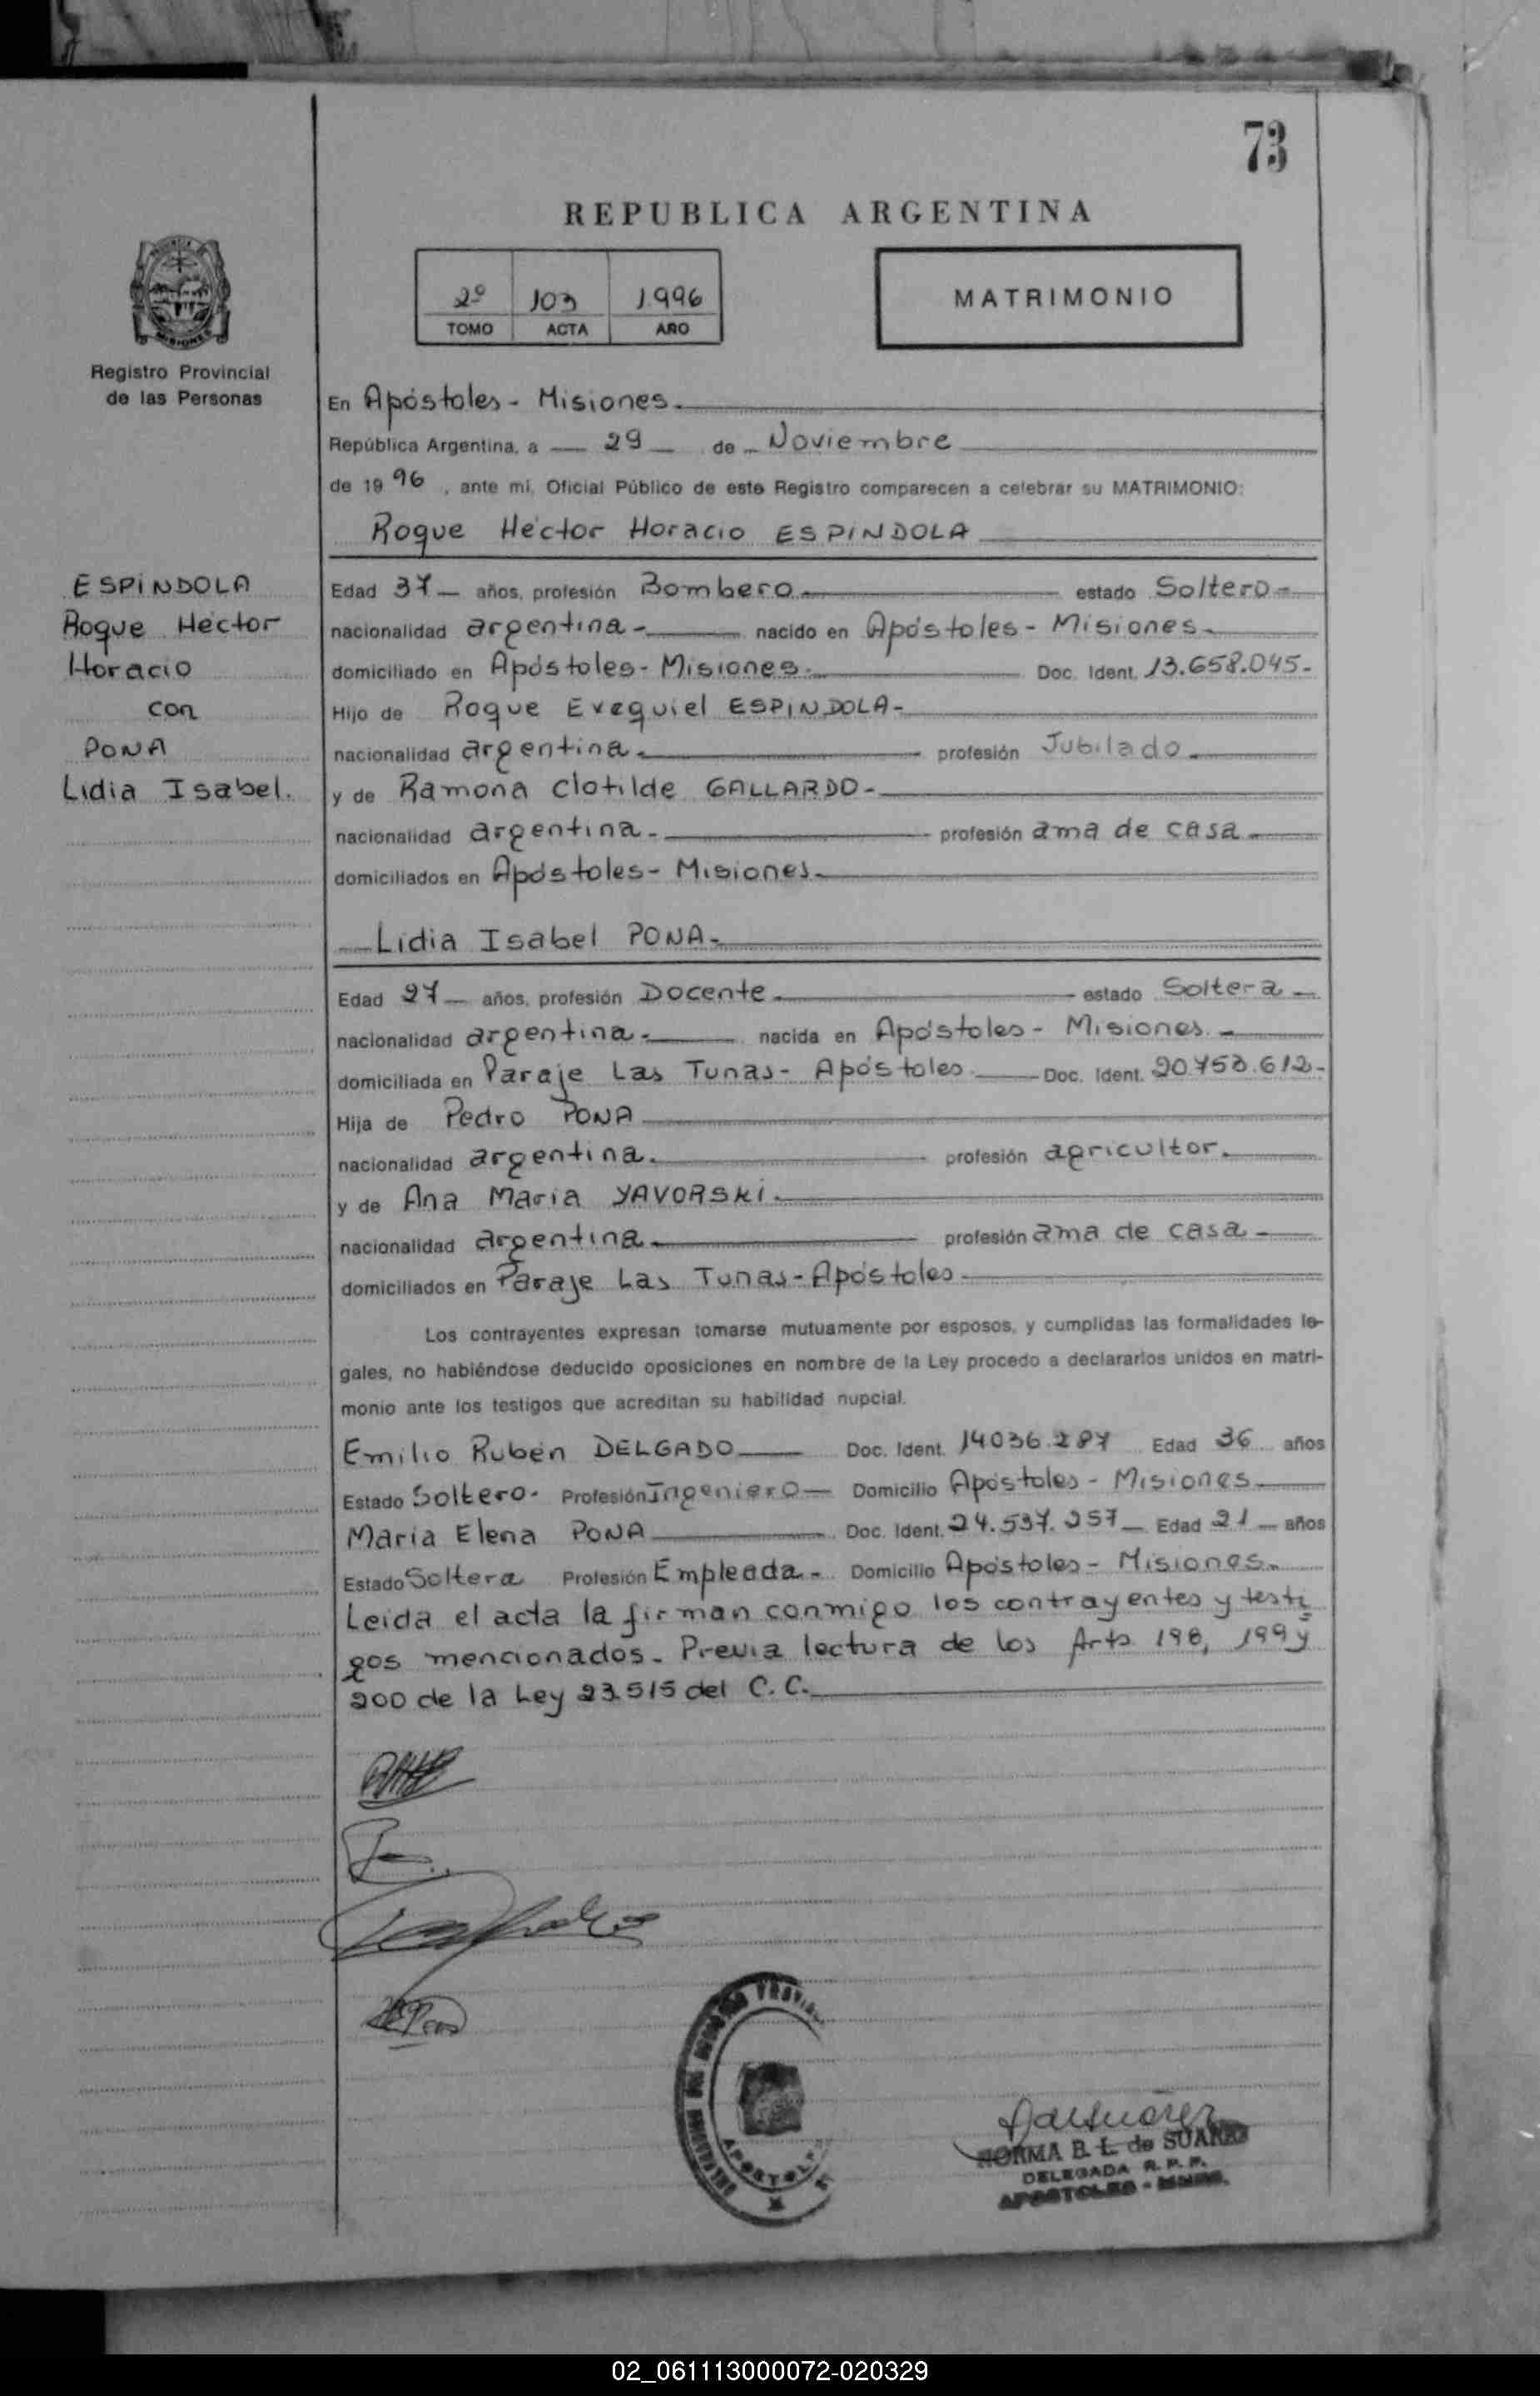 73
REPUBLICA ARGENTINA
2º 103 1.996
TOMO ACTA AÑO
MATRIMONIO
Registro Provincial
de las Personas
En Apóstoles - Misiones.
República Argentina, a 29 de Noviembre
de 19 96, ante mí, Oficial Público de este Registro comparecen a celebrar su MATRIMONIO:
Roque Héctor Horacio ESPINDOLA
ESPINDOLA
Roque Héctor
Horacio
con
PONA
Lidia Isabel.
Edad 37 años, profesión Bombero estado Soltero-
nacionalidad argentina- nacido en Apóstoles - Misiones-
domiciliado en Apóstoles- Misiones. Doc. Ident. 13.658.045-
Hijo de Roque Exequiel ESPINDOLA-
nacionalidad argentina. profesión Jubilado
y de Ramona Clotilde GALLARDO-
nacionalidad argentina- profesión ama de casa
domiciliados en Apóstoles- Misiones-
Lidia Isabel PONA-
Edad 27 años, profesión Docente estado Soltera
nacionalidad argentina. nacida en Apóstoles - Misiones.
domiciliada en Paraje Las Tunas- Apóstoles Doc. Ident. 20.753.612-
Hija de Pedro PONA
nacionalidad argentina. profesión agricultor.
y de Ana Maria YAVORSKI.
nacionalidad argentina profesión ama de casa
domiciliados en Paraje Las Tunas-Apóstoles
Los contrayentes expresan tomarse mutuamente por esposos, y cumplidas las formalidades le-
gales, no habiéndose deducido oposiciones en nombre de la Ley procedo a declararlos unidos en matri-
monio ante los testigos que acreditan su habilidad nupcial.
Emilio Rubén DELGADO Doc. Ident. 14036.287 Edad 36 años
Estado Soltero- Profesión Ingeniero Domicilio Apóstoles - Misiones
Maria Elena PONA Doc. Ident. 24.537.257 Edad 21 años
Estado Soltera Profesión Empleada- Domicilio Apóstoles - Misiones-
Leida el acta la firman conmigo los contrayentes y testi
gos mencionados. Previa lectura de los Arts 198, 199 y
200 de la Ley 23.515 del C.C.
APOSTOLES
NORMA B. L. de SUAREZ
DELEGADA R. P. P.
APOSTOLES - MNES.
02_061113000072-020329